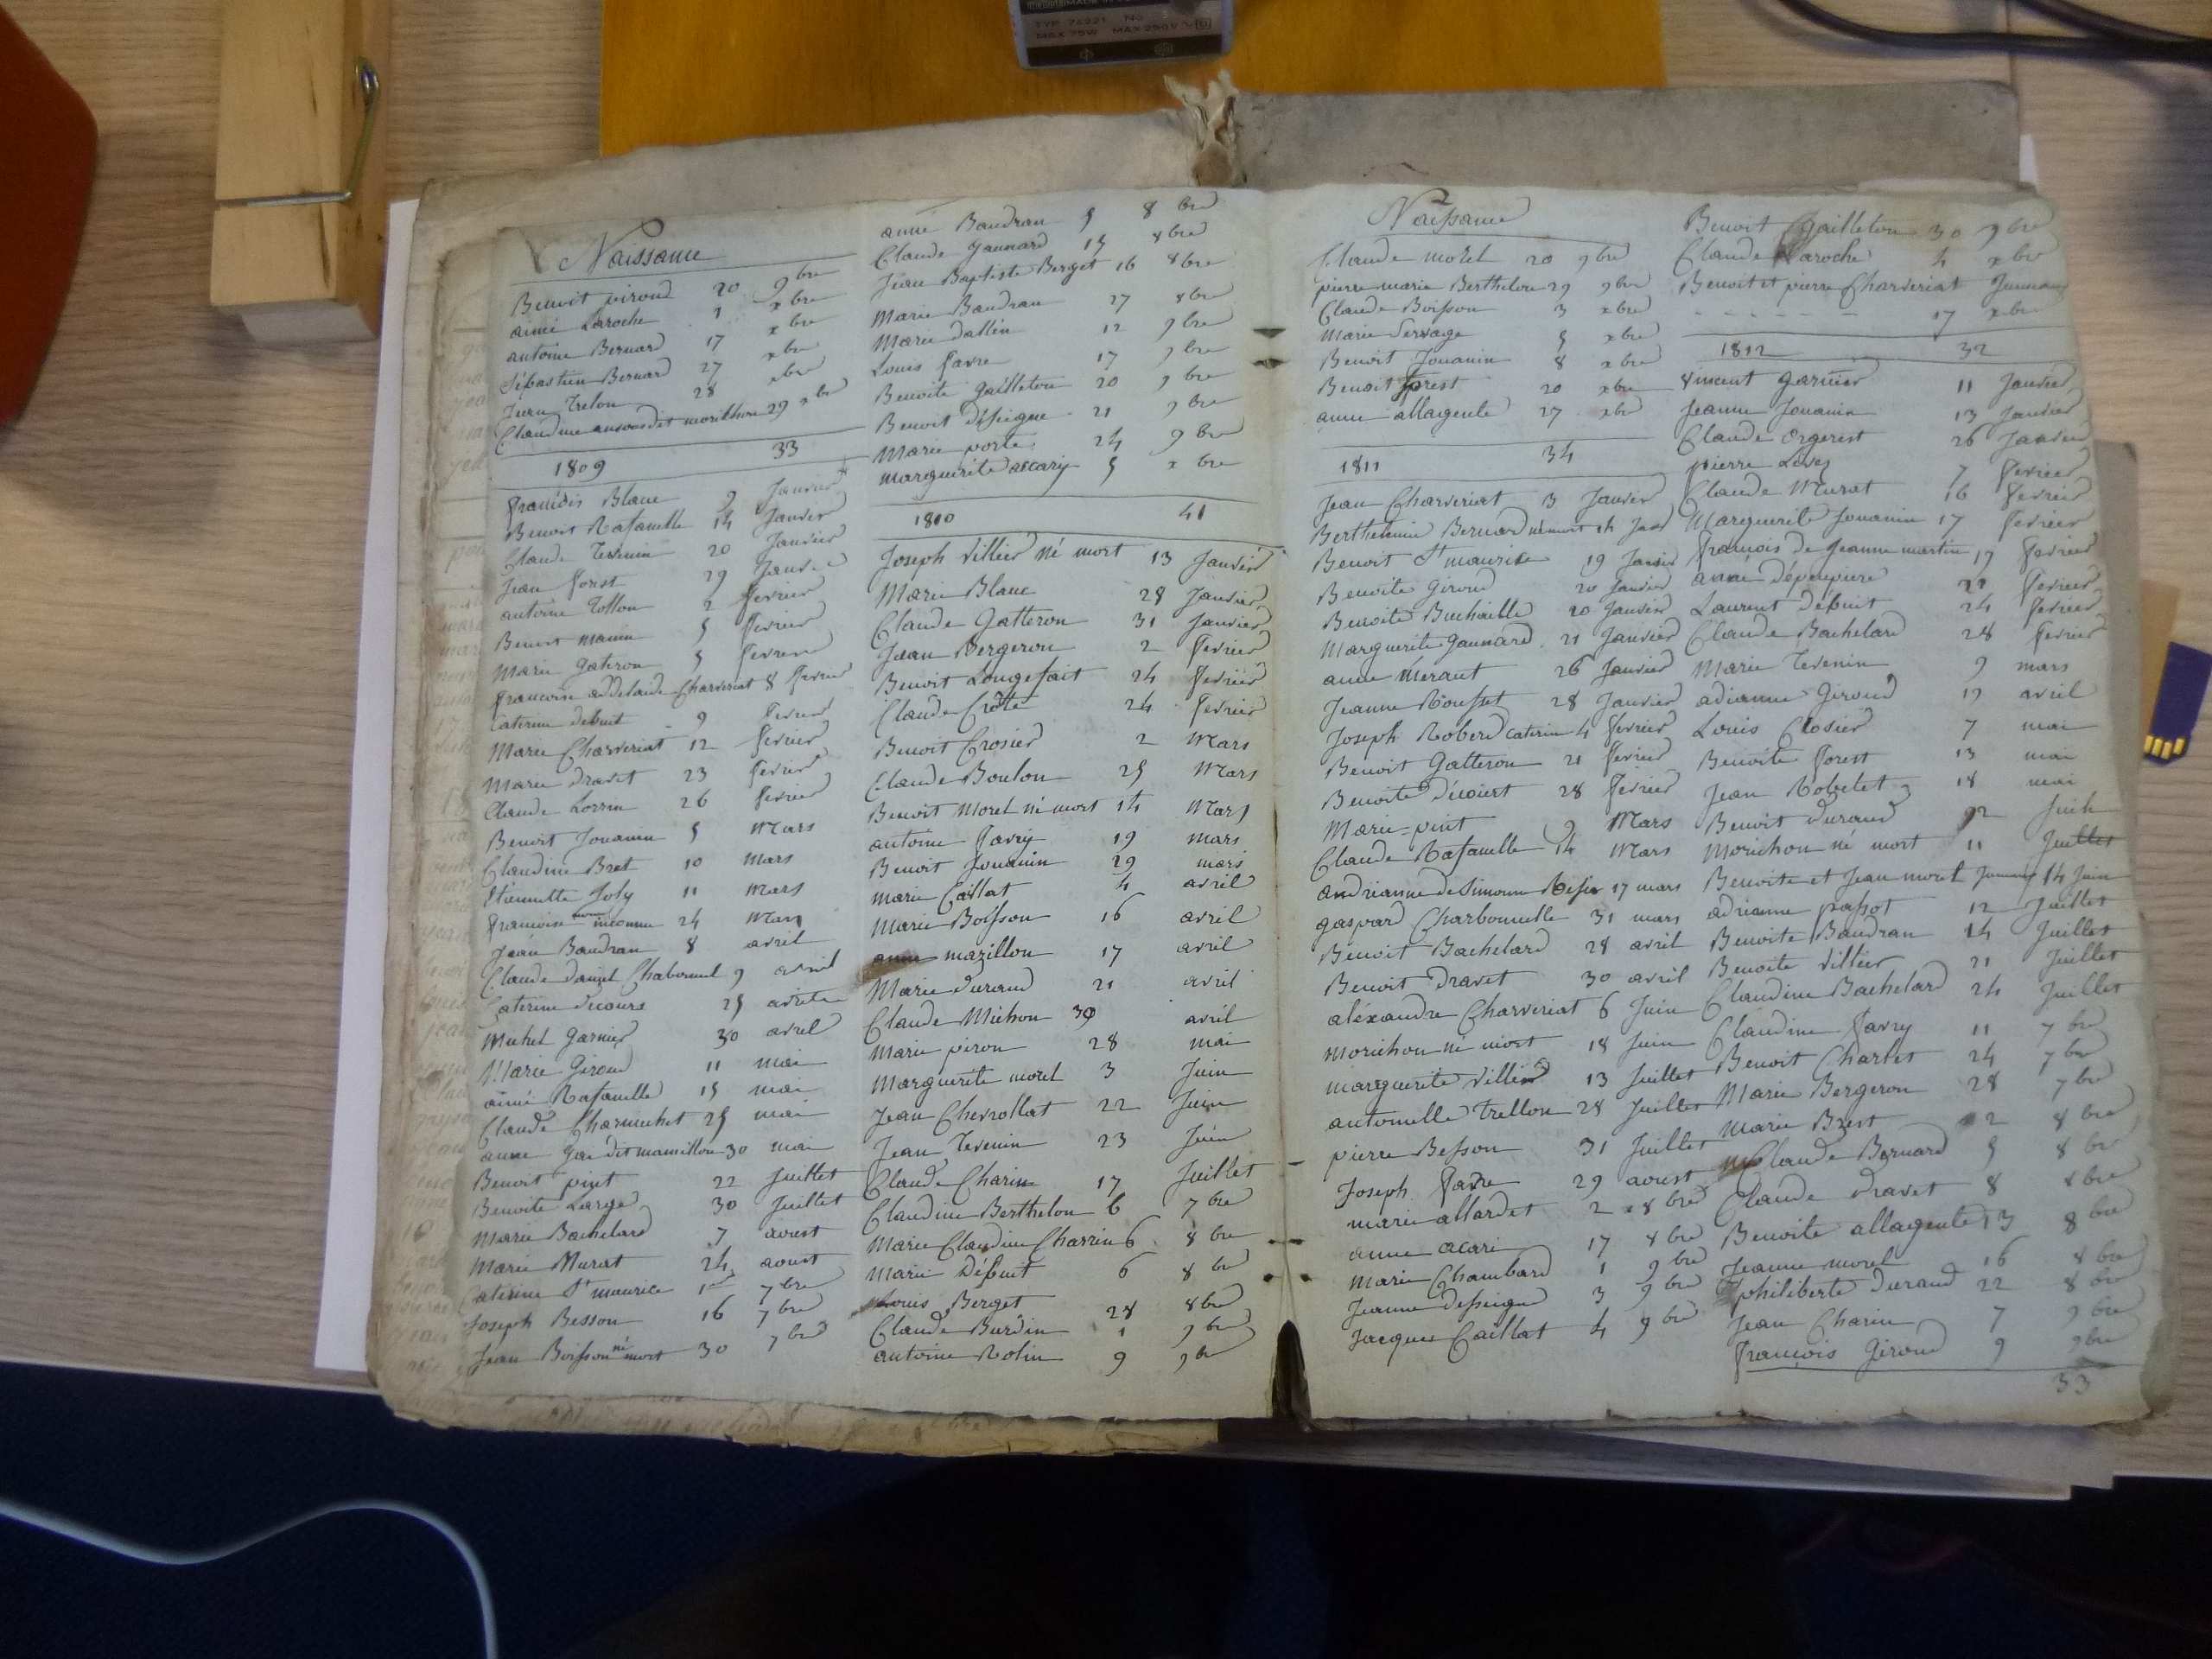 TYP 74221 No
MAX 75W MAX 250V
Naissance
Benoit piroud 20 9bre
aimé Laroche 1 xbre
antoine Bernard 17 xbre
Sébastien Bernard 27 xbre
Jean Trelon 28 xbre
Claudine dit morillon 29 xbre
1809 33
francois Blanc 9 Janvier
Benoit Rafanelle 14 Janvier
Claude Tevenin 20 Janvier
Jean forest 29 Janvier
antoine Tollon 2 fevrier
Benoit manin 5 fevrier
Marie gateron 5 fevrier
francoise addelaide Charveriat 8 fevrier
Caterine debuit 9 fevrier
Marie Charveriat 12 fevrier
Marie dravet 23 fevrier
Claude Lorrin 26 fevrier
Benoit Jouanin 5 Mars
Claudine Bret 10 Mars
Etiennette Joly 11 Mars
francoise inconnu 24 Mars
Jean Baudran 8 avril
Claude daniel Chabonnel 9 avril
Caterine decours 25 avril
Michel garnier 30 avril
Marie Giroud 11 mai
aimé Rafanelle 15 mai
Claude Charmichet 25 mai
anne gai dit mamillon 30 mai
Benoit pint 22 Juillet
Benoite Large 30 Juillet
Marie Bachelard 7 aoust
Marie Murat 24 aoust
Caterine St maurice 1er 7bre
Joseph Besson 16 7bre
Jean Boisson né mort 30 7bre
anne Baudran 5 8bre
Claude gaunard 15 8bre
Jean Baptiste Berget 16 8bre
Marie Baudran 27 8bre
Marie dallin 12 9bre
Louis favre 17 9bre
Benoite gailleton 20 9bre
Benoit dessigne 21 9bre
Marie porte 24 9bre
marguerite accary 5 xbre
1810 41
Joseph villier né mort 13 Janvier
Marie Blanc 28 Janvier
Claude Gatteron 31 Janvier
Jean Bergeron 2 fevrier
Benoit Longefait 24 fevrier
Claude Crote 24 fevrier
Benoit Crosier 2 Mars
Claude Boulon 25 Mars
Benoit Morel né mort 14 Mars
antoine favry 19 mars
Benoit Jouanin 29 mars
marie Caillat 4 avril
Marie Boisson 16 avril
anne mazillon 17 avril
Marie durand 21 avril
Claude Michon 30 avril
Marie piron 28 mai
Marguerite morel 3 Juin
Jean Chevrollat 22 Juin
Jean Tevenin 23 Juin
Claude Charin 17 Juillet
Claudine Berthelon 6 7bre
Marie Claudine Charrin 6 8bre
Marie Débuit 6 8bre
Louis Berget 28 8bre
Claude Burdin 1 9bre
antoine Rolin 9 9br
Naissance
Claude morel 20 9bre
pierre marie Berthelon 29 9bre
Claude Boisson 3 xbre
Marie Servage 5 xbre
Benoit Jouanin 8 xbre
Benoit forest 20 xbre
anne allagente 27 xbre
1811 34
Jean Charveriat 3 Janvier
Berthelmie Bernard né mort 14 Janv
Benoit St maurice 19 Janvier
Benoite Giroud 20 Janvier
Benoite Buchaille 20 Janvier
Marguerite gaunard 21 Janvier
anne Merant 26 Janvier
Jeanne Rousset 28 Janvier
Joseph Roberd Caterin 4 fevrier
Benoit Gatteron 21 fevrier
Benoite Décoiert 28 fevrier
Marie pint 9 Mars
Claude Rafanelle 14 Mars
andrianne de Simonne 17 mars
gaspard Charbonnelle 31 mars
Benoit Bachelard 28 avril
Benoit Dravet 30 avril
aléxandre Charveriat 6 Juin
Morichon né mort 18 Juin
marguerite villier 13 Juillet
antoinelle Trellon 28 Juillet
pierre Besson 31 Juillet
Joseph favre 29 aoust
marie allardet 2 8bre
anne acari 17 8bre
Marie Chambard 1 9bre
Jeanne dessigne 3 9bre
Jacques Caillat 4 9bre
Benoit gailleton 30 9bre
Claude Laroche 4 xbre
Benoit et pierre Charveriat Jumeaux
- - - - - - 17 xbre
1812 32
vincent garnier 11 Janvier
Jeanne Jouanin 13 Janvier
Claude orgerest 26 Janvier
pierre 7 fevrier
Claude Murat 16 fevrier
Marguerite Jouanin 17 fevrier
francois de Jeanne martin 19 fevrier
anne dépeupiere 21 fevrier
Laurent débuit 24 fevrier
Claude Bachelard 28 fevrier
Marie Tevenin 9 mars
adrianne Giroud 12 avril
Louis Closier 7 mai
Benoite forest 13 mai
Jean Robelet 18 mai
Benoit durand
Morichon né mort 11
Benoite et Jean morel 14 Juin
adrianne passot 12 Juillet
Benoite Baudran 14 Juillet
Benoite villier 21 Juillet
Claudine Bachelard 24 Juillet
Claudine favry 11 7bre
Benoit Charlet 24 7bre
Marie Bergeron 28 7bre
Marie Brest 2 8bre
Claude Bernard 5 8br
Claude dravet 8 8bre
Benoite allagente 13 8bre
Jeanne morel 16 8bre
philiberte durand 22 8bre
Jean Charin 7 9bre
francois Giroud 9 9bre
33